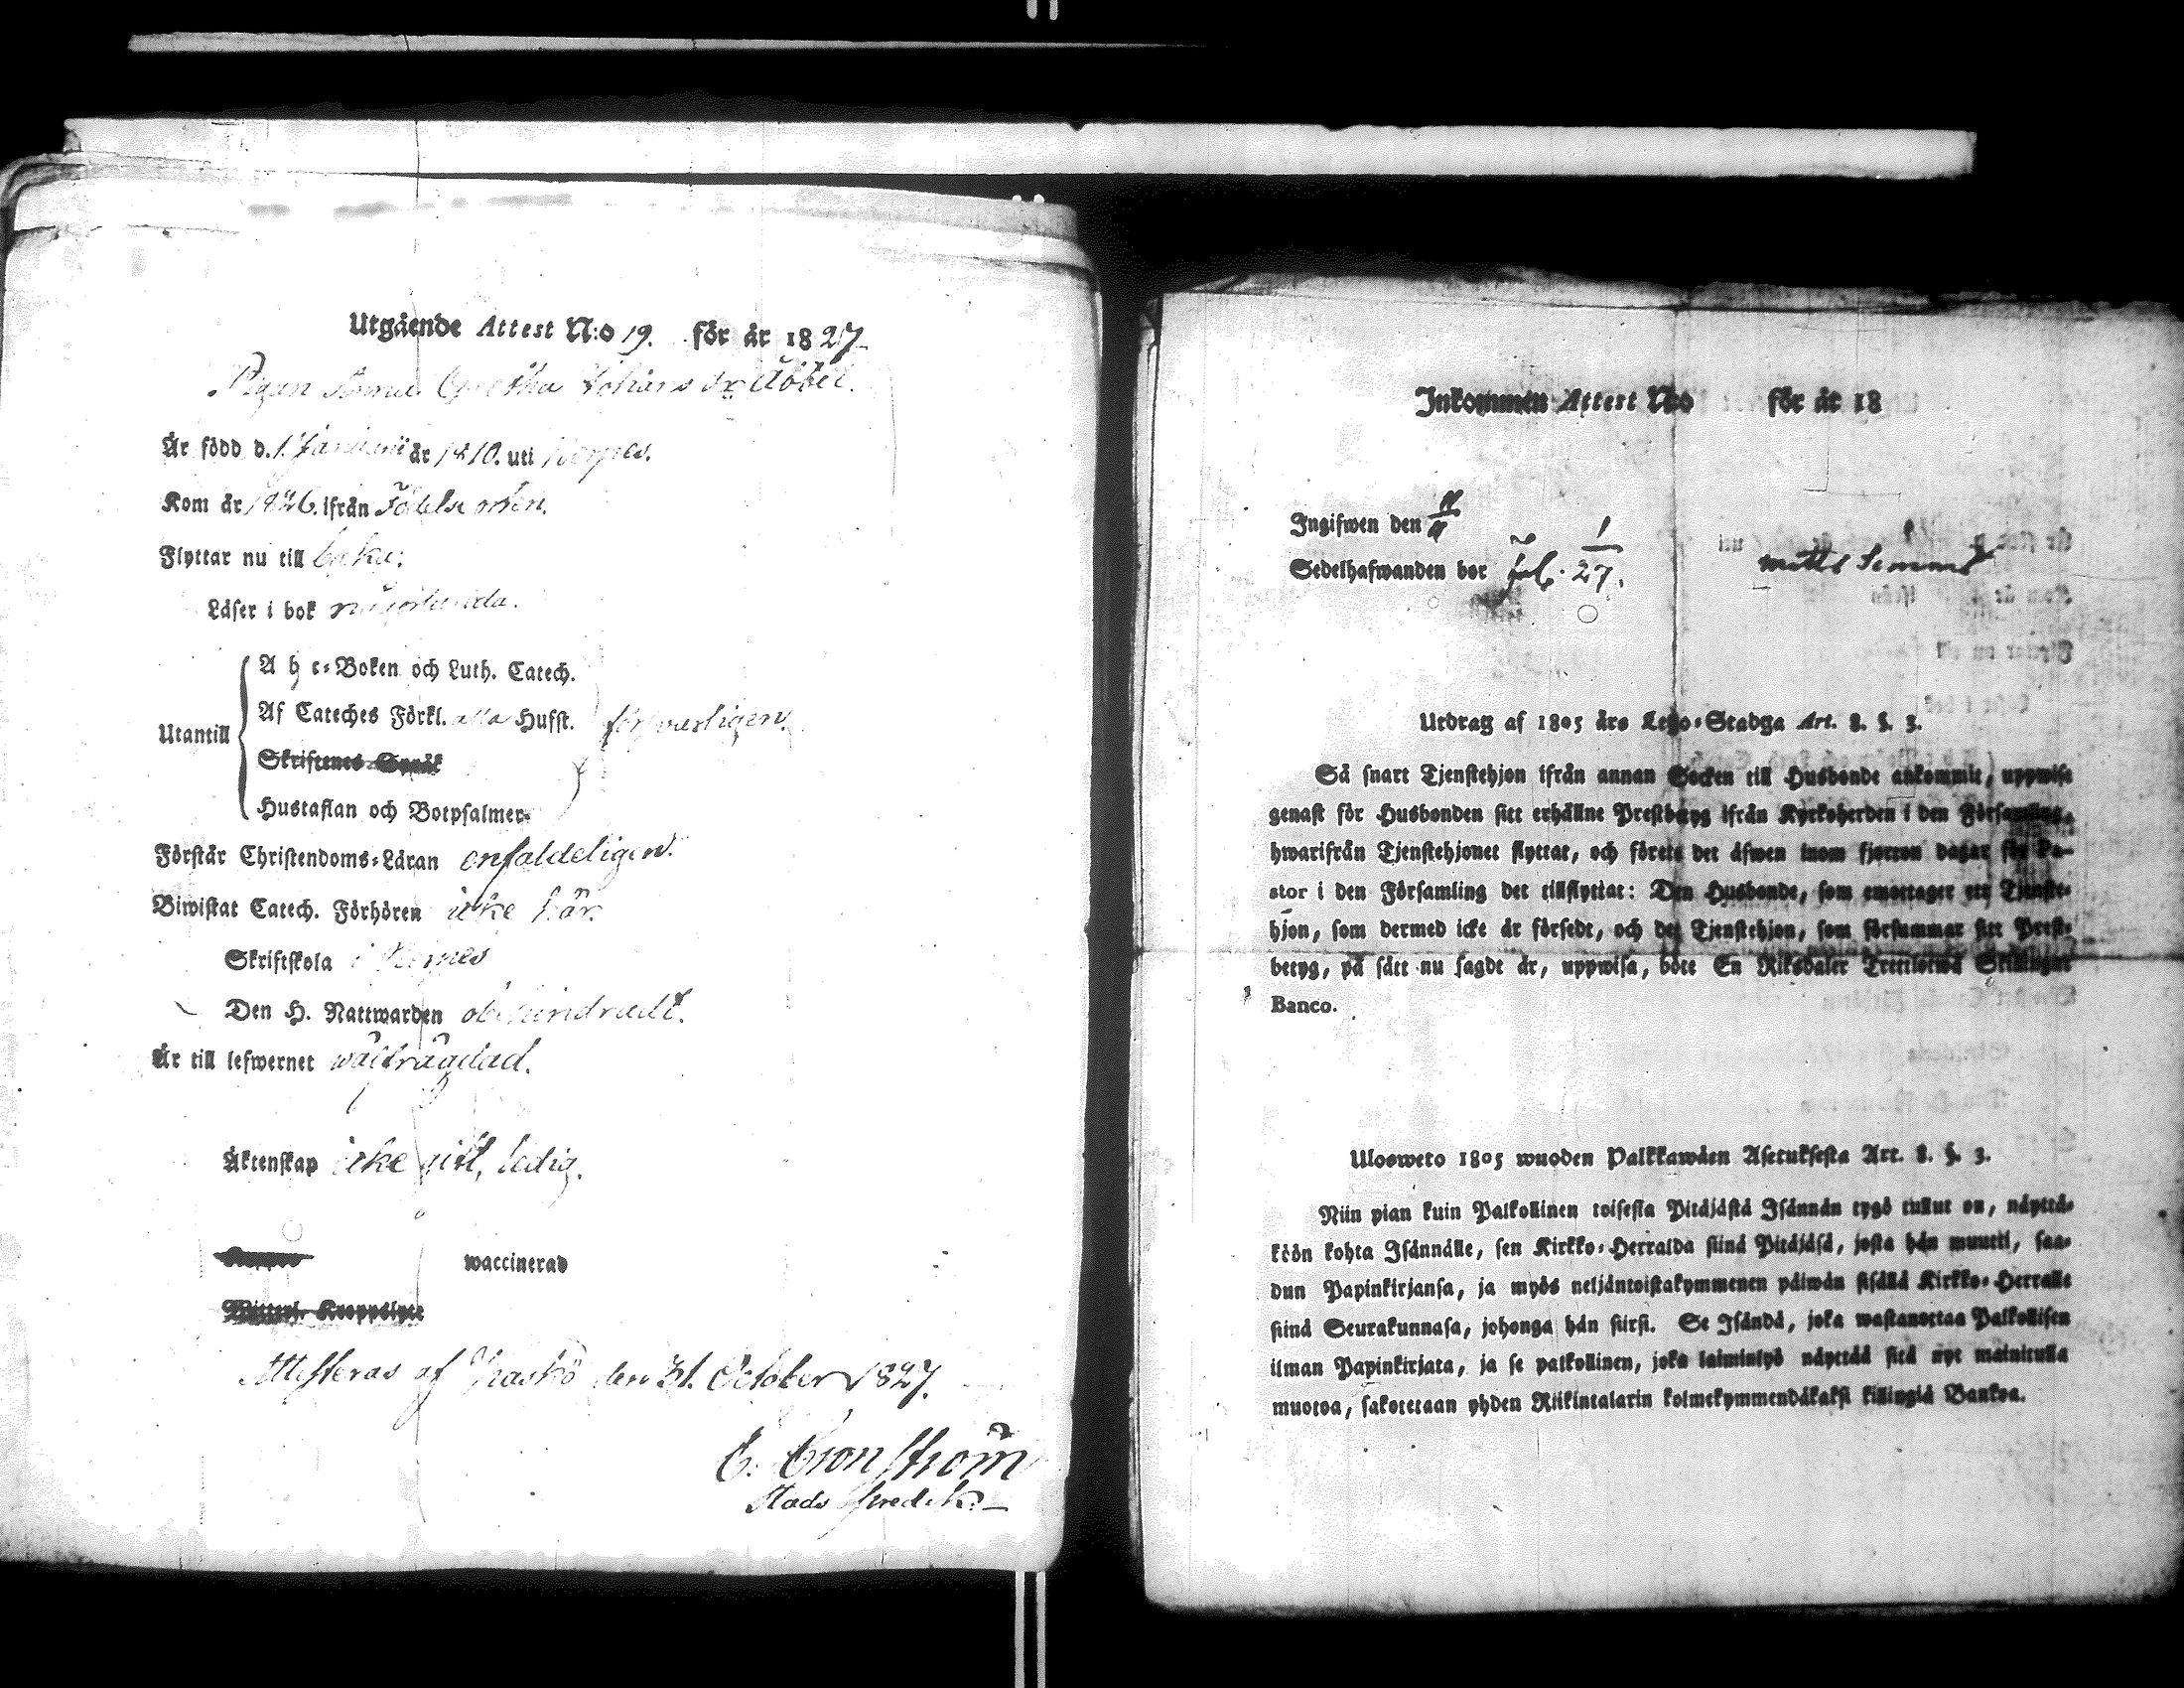 Utgående Attest N:o 19. för år 1827
Pigan Anna Gretha Johans dr
Är född d. 1. Januarii år 1810. uti
Kom år 1826. ifrån Födelse orten.
Flyttar nu till
Läser i bok
Utantill
A b c-Boken och Luth. Catech.
Af Cateches Förkl. alla Husst. försvarligen.
Skriftenes Språk
Hustaflan och Botpsalmer
Förstår Christendoms-Läran enfaldeligen.
Biwistat Catech. Förhören icke här.
Skriftskola i
Den H. Nattwarden obehindradt.
Är till lefwernet wälfrägdad.
Äktenskap icke gift, ledig.
waccinerad
Attesteras af Kaskö den 31. October 1827.
E. Cronström
Stads predik.
Inkommen Attest N:o för år 18
Ingifwen den
Sedelhafwanden bor
27.
Utdrag af 1805 års Lego-Stadga Art. 8. §. 3.
Så snart Tjenstehjon ifrån annan Socken till Husbonde ankommit, uppwise
genast för Husbonden sitt erhållne Prestbetyg ifrån Kyrkoherden i den Församling,
hwarifrån Tjenstehjonet flyttat, och förete det äfwen inom fjorton dagar för Pa-
stor i den Församling det tillflyttat: Den Husbonde, som emottager ett Tjenste-
hjon, som dermed icke är försedt, och det Tjenstehjon, som försummar sitt Prest-
betyg, på sätt nu sagdt är, uppwisa, böte En Riksdaler Trettiotwå Skillingar
Banco.
Ulosweto 1805 wuoden Palkkawäen Asetuksesta Art. 8. §. 3.
Niin pian kuin Palkollinen toisesta Pitäjästä Isännän tygö tullut on, näyttä-
köön kohta Isännälle, sen Kirkko-Herralda siinä Pitäjäsä, josta hän muutti, saa-
dun Papinkirjansa, ja myös neljäntoistakymmenen päiwän sisällä Kirkko-Herralle
siinä Seurakunnasa, johonga hän siirsi. Se Isändä, joka wastanottaa Palkollisen
ilman Papinkirjata, ja se palkollinen, joka laiminlyö näyttää sitä nyt mainitulla
muotoa, sakotetaan yhden Riikintalarin kolmekymmendäkaksi killingiä Bankoa.